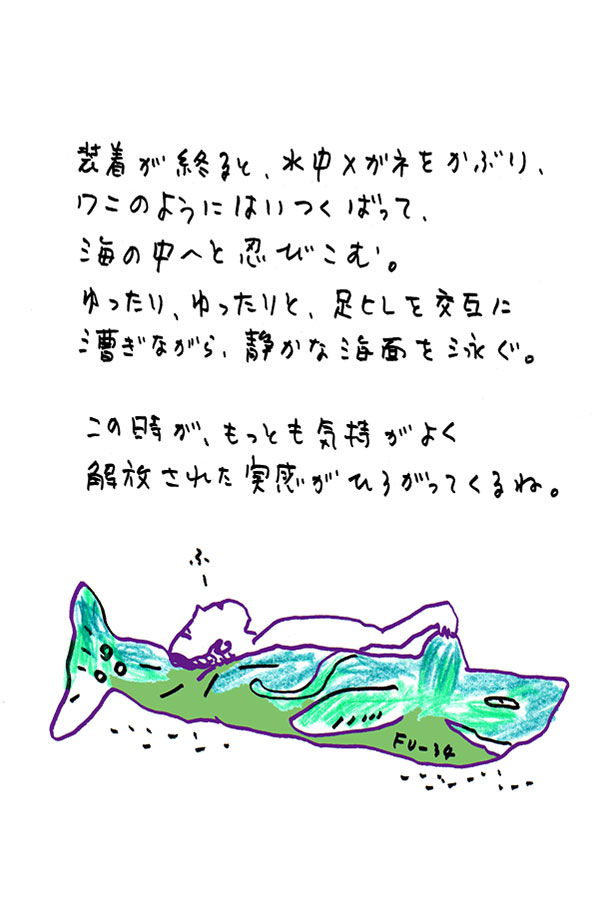 装着が終ると、水中メガネをかぶり、
ワニのようにはいつくばって、
海の中へと忍びこむ。
ゆったり、ゆったりと、足ヒレを交互に
漕ぎながら、静かな海面を泳ぐ。
この時が、もっとも気持がよく
解放された実感がひろがってくるね。
ふー
FU-34